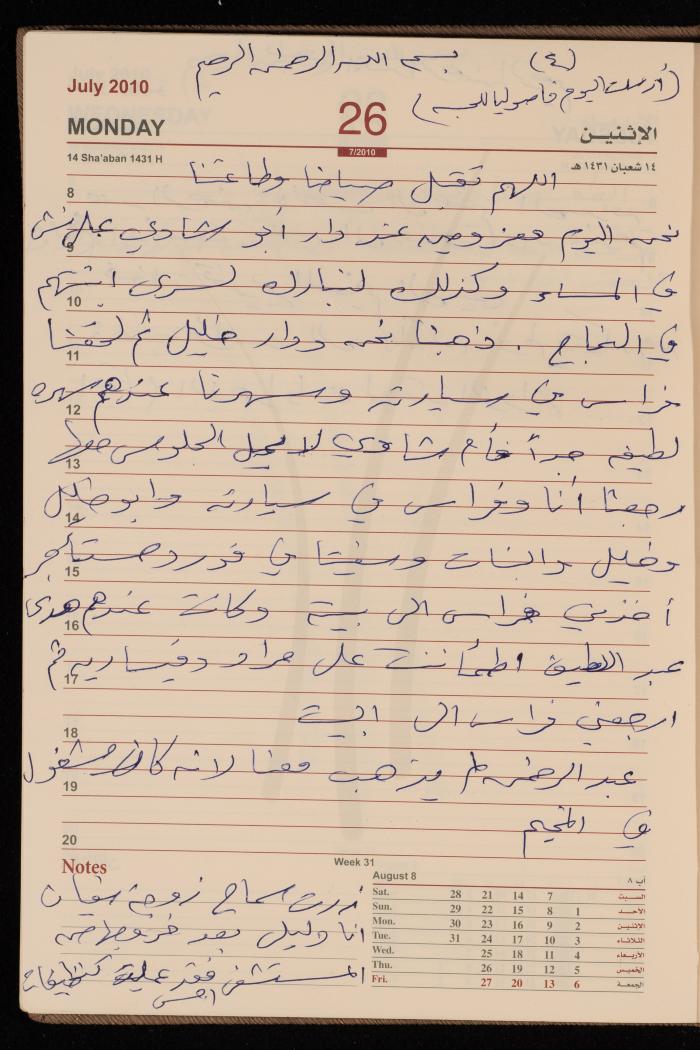 بسم الله الرحمن الرحيم
(٤)
(أرسلت اليوم فاصوليا للحبه)
July 2010
MONDAY
26
7/2010
الإثنين
14 Sha'aban 1431 H
١٤ شعبان ١٤٣١ هـ
اللهم تقبل صيامنا وطاعتنا
8
نحن اليوم معزومين عند دار أبو شادي
9
في المساء وكذلك لنبارك لسرى ابنتهم
10
في النجاح . ذهبنا نحن ودار خليل ثم لحقنا
11
فراس في سيارته وسهرنا عندهم سهره
12
لطيفه جداً شادي لا الجلوس
13
رجعنا أنا وفراس في سيارته وابو خليل
14
وخليل والبنات في
15
أخذني فراس الى بيته وكانت عندهم هدى
16
عبد اللطيف اطمأننت على مراد ثم
17
ارجعني فراس الى البيت
18
عبد الرحمن لم يذهب معنا لانه كان مشغول
19
في المخيم
20
Notes
زرت سماح زوجة سفيان
انا ودليل بعد خروجها من
المستشفى فقد عملية تنظيفات
امس
Week 31
August 8
آب ٨
Sat. 28 21 14 7 السبت
Sun. 29 22 15 8 1 الأحد
Mon. 30 23 16 9 2 الإثنين
Tue. 31 24 17 10 3 الثلاثاء
Wed. 25 18 11 4 الأربعاء
Thu. 26 19 12 5 الخميس
Fri. 27 20 13 6 الجمعة